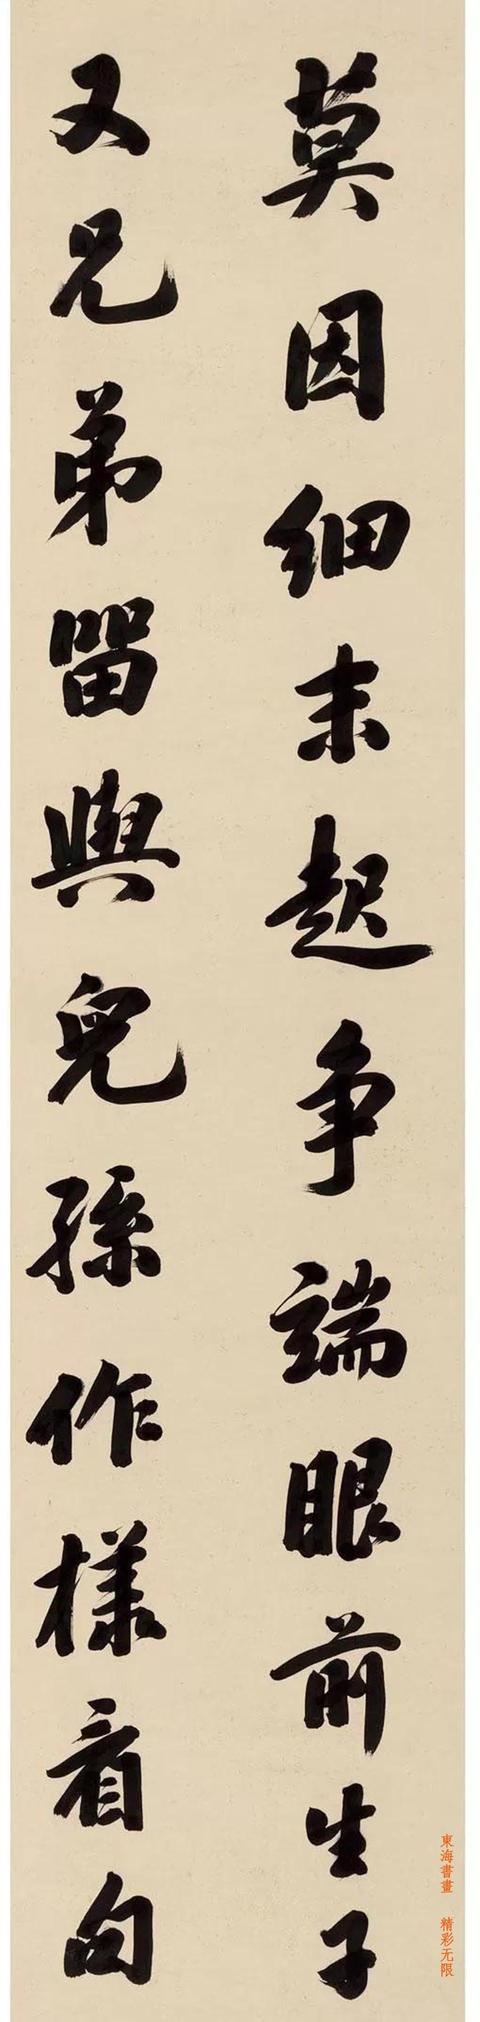 莫因細末起爭端眼前生子
又兄弟留與兒孫作樣看向
東海書畫 精彩无限